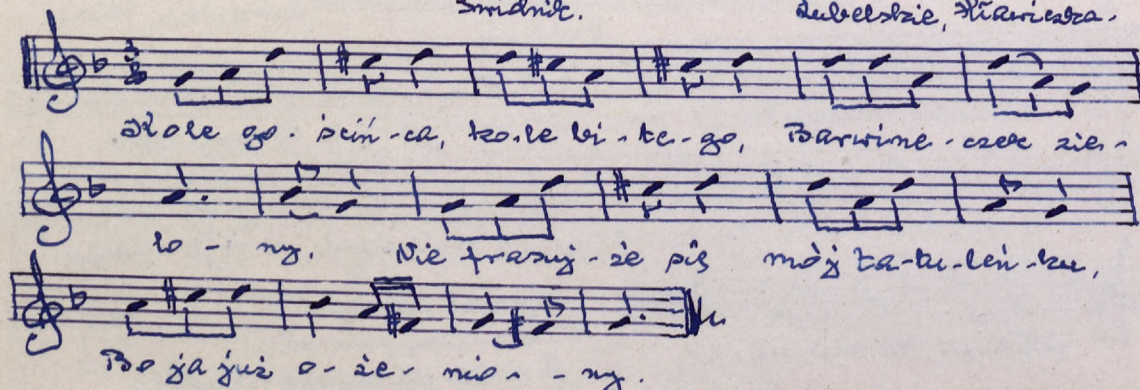 Świdnik. Lubelskie, Krawieczka.
3 8
Kole go-ściń-ca, ko-le bi-te-go, Barwine-czek zie-
lo-ny. Nie frasuj-że się mój ta-tu-leń-ku,
Bo ja już o-że-nio--ny.